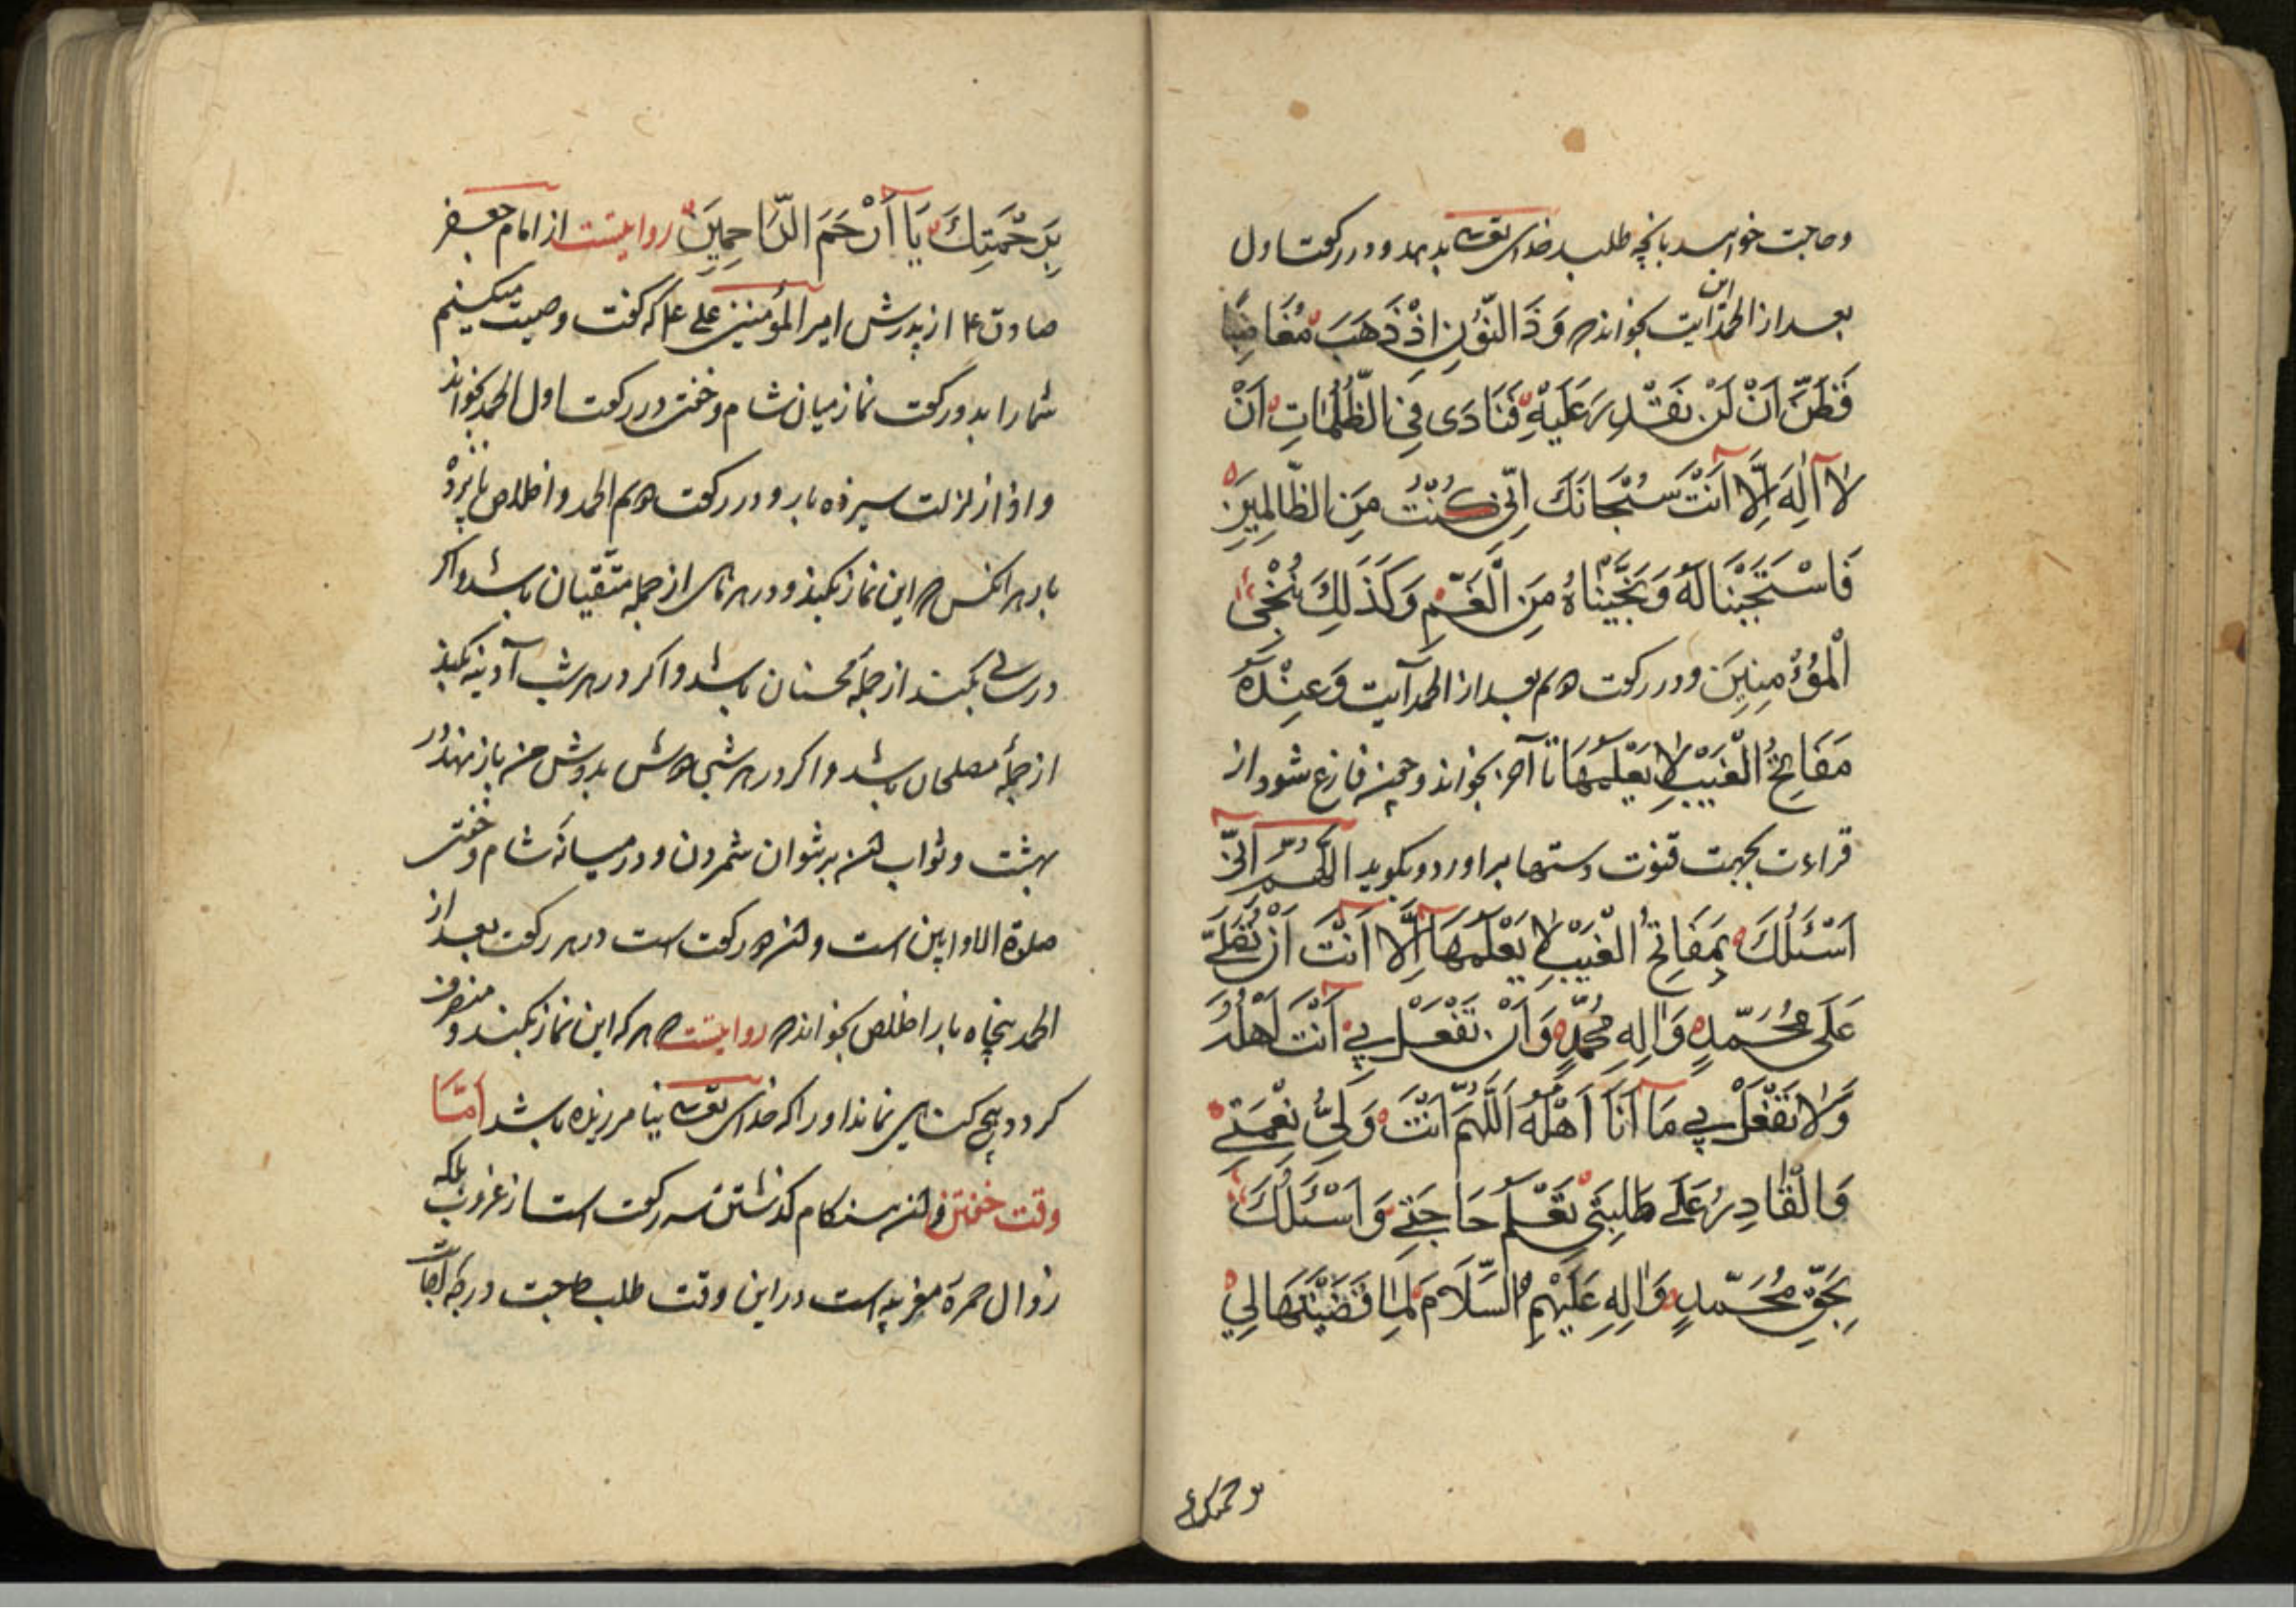 وحاجت خواهد بانچه طلبد خدای تعالی بدهد و در رکعت اول
بعد از الحمد این آیت بخواند وَذَا النُّونِ اِذْ ذَهَبَ مُغَاضِبًا
فَظَنَّ اَنْ لَنْ نَقْدِرَ عَلَيْهِ فَنَادَى فِي الظُّلُمَاتِ اَنْ
لَا اِلٰهَ اِلَّا اَنْتَ سُبْحَانَكَ اِنِّي كُنْتُ مِنَ الظَّالِمِينَ
فَاسْتَجَبْنَا لَهُ وَنَجَّيْنَاهُ مِنَ الْغَمِّ وَكَذَلِكَ نُنْجِي
الْمُؤْمِنِينَ و در رکعت دوم بعد از الحمد آیت وَعِنْدَهُ
مَفَاتِحُ الْغَيْبِ لَا يَعْلَمُهَا تا آخر بخواند و چون فارغ شود از
قراءت بجهت قنوت دستها براورد و بگوید اَللّٰهُمَّ اِنِّي
اَسْئَلُكَ بِمَفَاتِحِ الْغَيْبِ لَا يَعْلَمُهَا اِلَّا اَنْتَ اَنْ تُصَلِّيَ
عَلَى مُحَمَّدٍ وَاٰلِهِ مُحَمَّدٍ وَاَنْ تَفْعَلَ بِي اَنْتَ اَهْلُهُ
وَلَا تَفْعَلْ بِي مَا اَنَا اَهْلُهُ اَللّٰهُمَّ اَنْتَ وَلِيُّ نِعْمَتِي
وَالْقَادِرُ عَلَى طَلِبَتِي تَعْلَمُ حَاجَتِي وَاَسْئَلُكَ
بِحَقِّ مُحَمَّدٍ وَاٰلِهِ عَلَيْهِمُ السَّلَامُ لَمَّا قَضَيْتَهَا لِي
بِرَحْمَتِكَ يَا اَرْحَمَ الرَّاحِمِينَ روایتست از امام جعفر
صادق ع از پدرش امیر المؤمنین علی ع که گفت وصیت میکنم
شما را بدو رکعت نماز میان شام و خفتن در رکعت اول الحمد بخواند
و اذا زلزلت سیزده بار و در رکعت دوم الحمد و اخلاص پانزده
بار هر انکس که این نماز بکند و در هر ماهی از جمله متقیان باشد و اگر
در سالی بکند از جمله محسنان باشد و اگر در هر شب آدینه بکند
از جمله مصلحان باشد و اگر در هر شبی دوش بدوش من باز نهد در
بهشت و ثواب ان بر نتوان شمردن و در میانه شام و خفتن
صلوة الاوابین است و ان دو رکعت است در هر رکعت بعد از
الحمد پنجاه بار اخلاص بخواند روایتست که هر که این نماز بکند و منصرف
گردد هیچ گناهی نماند او را که خدای تعالی نیامرزیده باشد اَمَّا
وقت خفتن و ان هنگام گذشتن سه رکعت است از غروب بلکه
زوال حمرة مغربیه است در این وقت طلب حاجت درجه اجابت